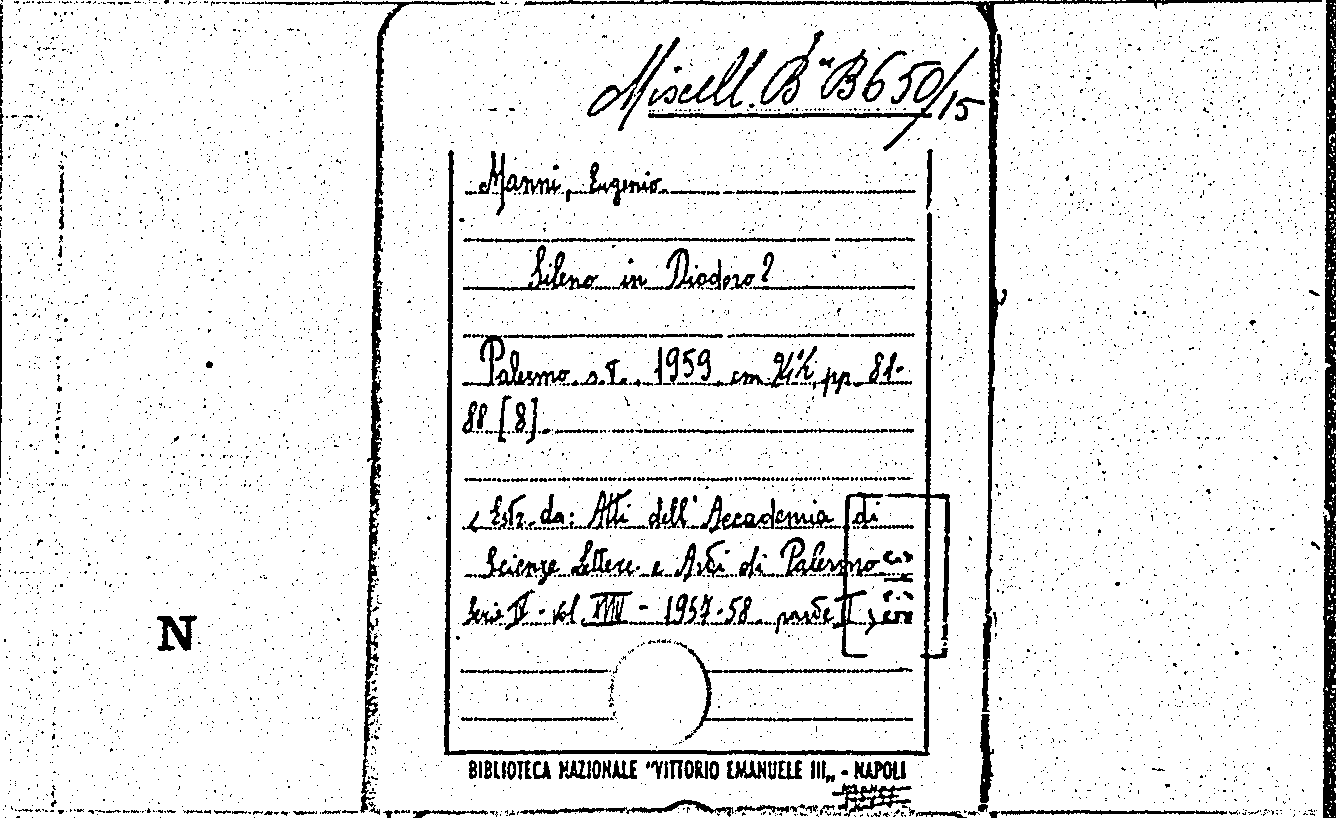 Miscell. Bª B650/15
Manni, Eugenio
Sileno in Diodoro?
Palermo s.T. 1959 cm 24½ pp. 81-
88 [8].
Estr. da: Atti dell'Accademia di
Scienze Lettere e Arti di Palermo
Serie IV - vol. XVIII - 1957-58 parte II
N
BIBLIOTECA NAZIONALE "VITTORIO EMANUELE III„ - NAPOLI